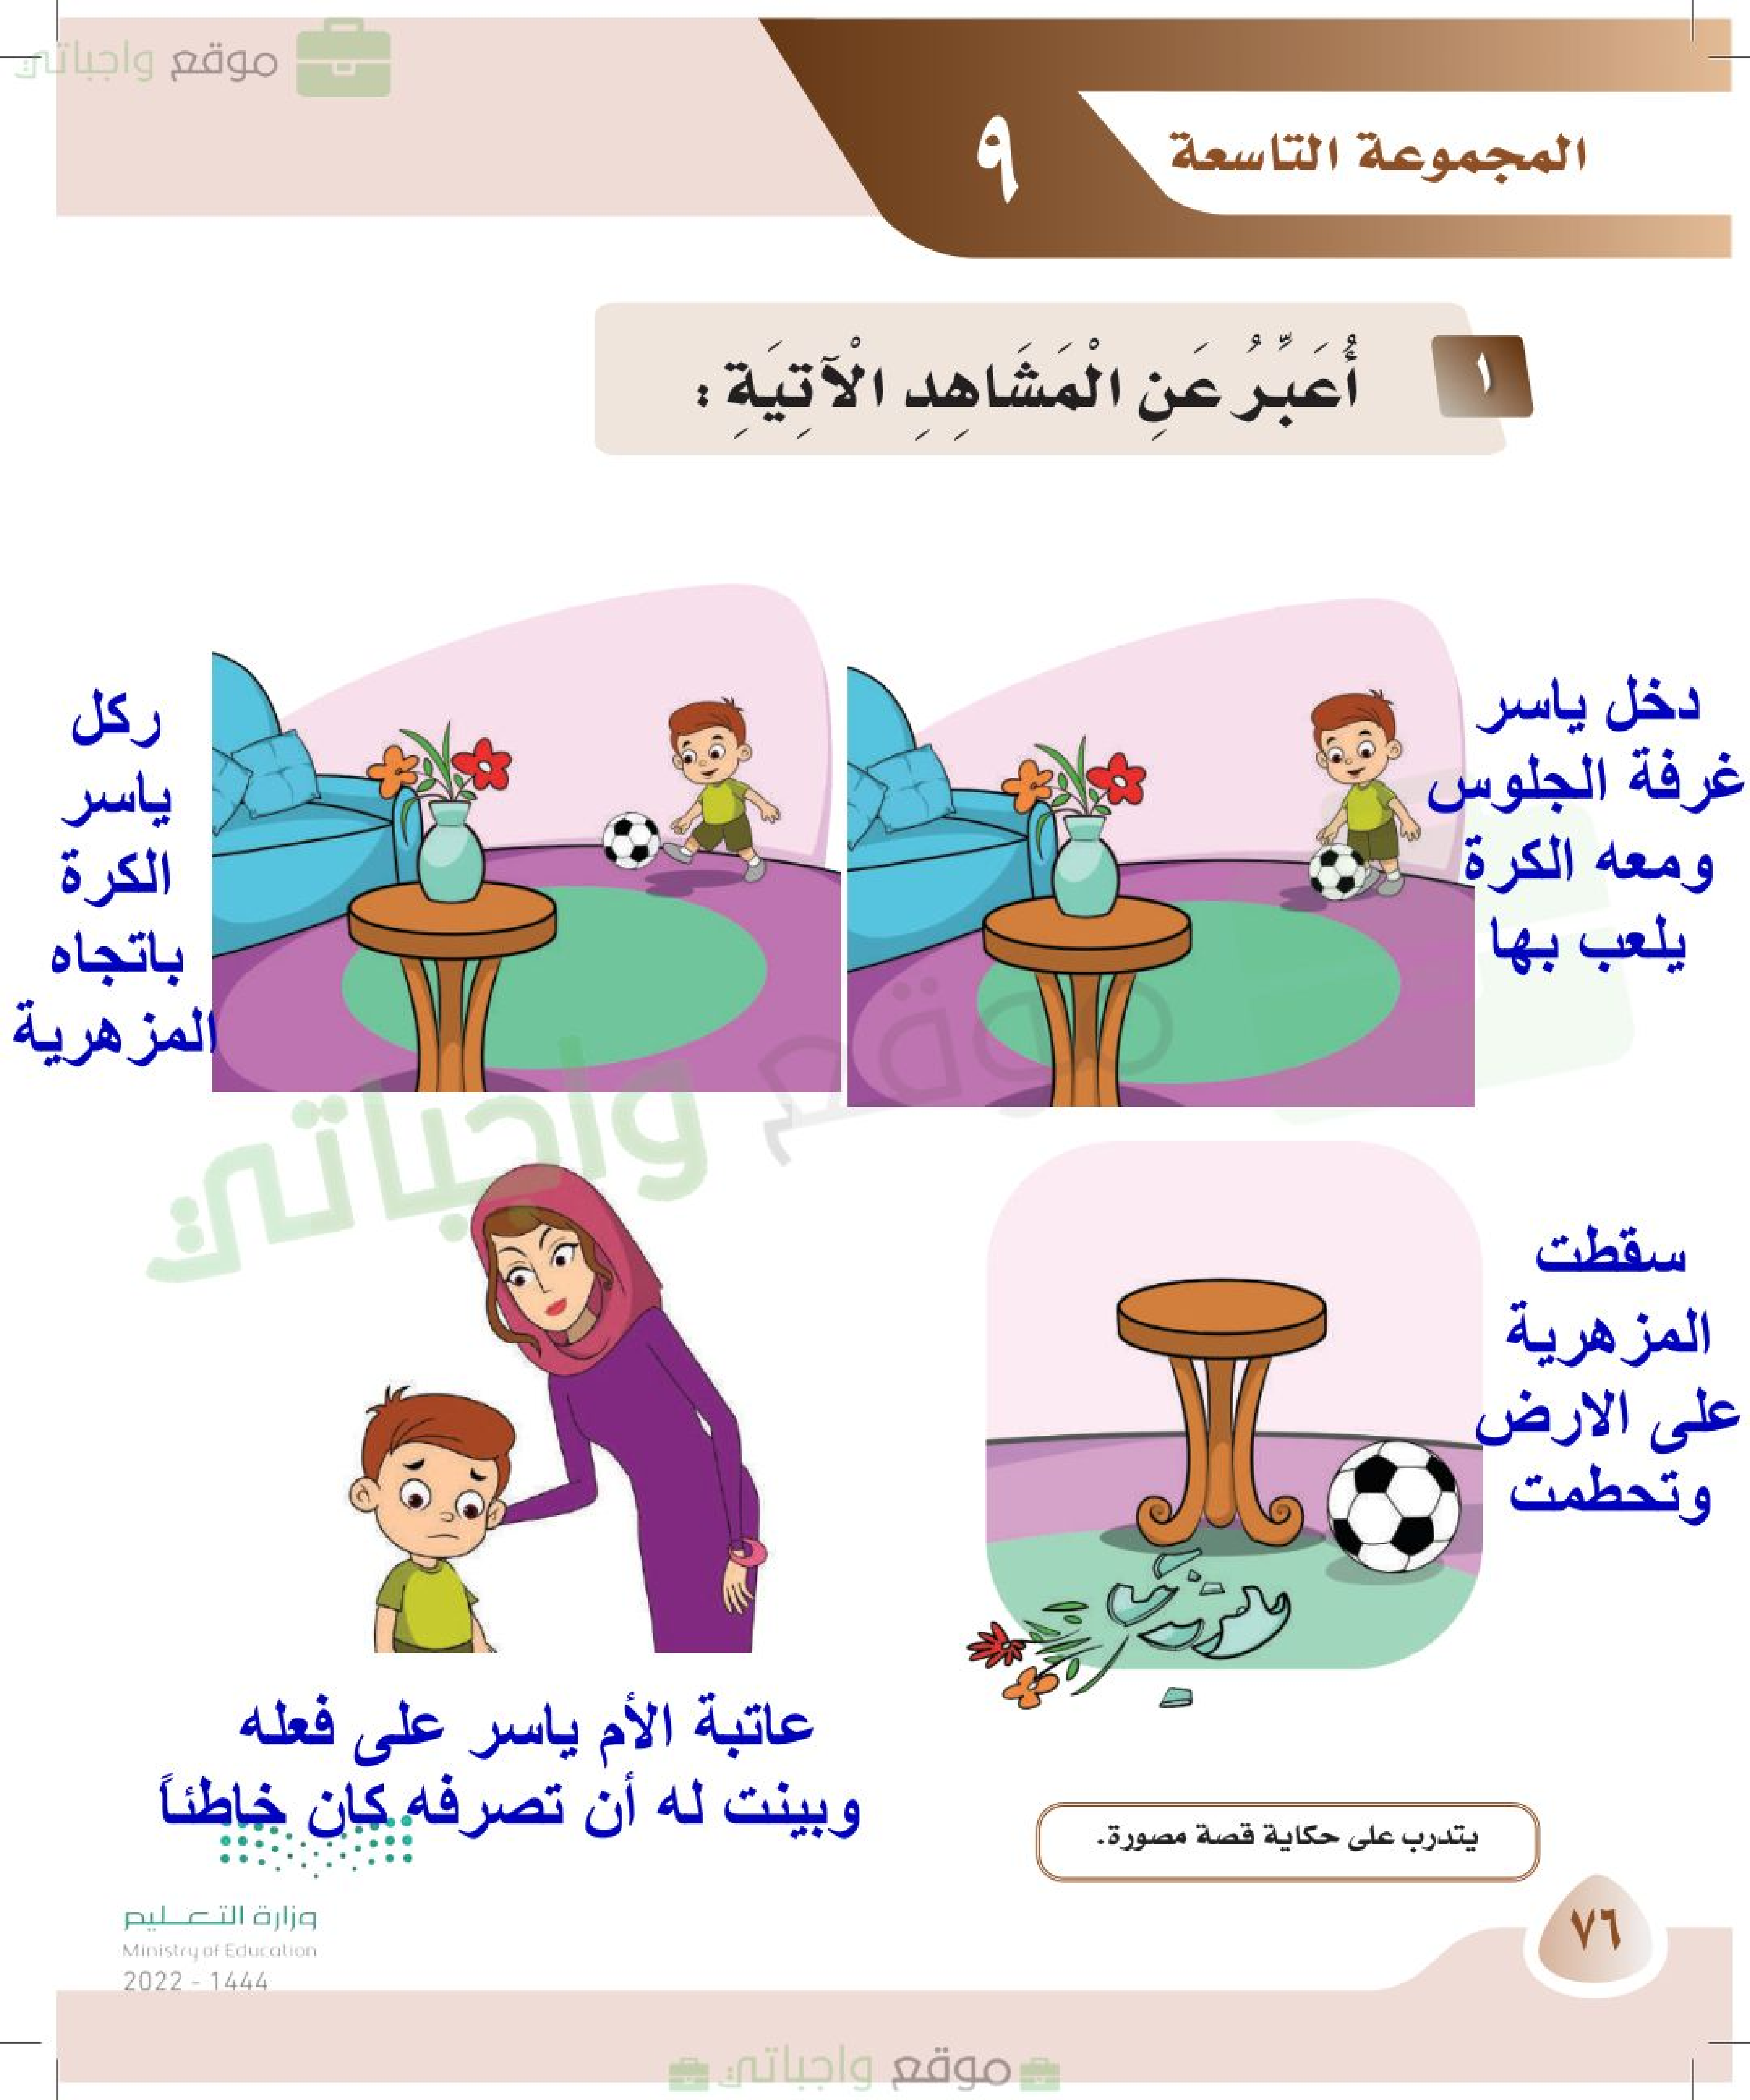 موقع واجباتي
المجموعة التاسعة
٩
١
أُعَبِّرُ عَنِ الْمَشَاهِدِ الْآتِيَةِ :
دخل ياسر
غرفة الجلوس
ومعه الكرة
يلعب بها
ركل
ياسر
الكرة
باتجاه
المزهرية
موقع واجباتي
سقطت
المزهرية
على الارض
وتحطمت
عاتبة الأم ياسر على فعله
وبينت له أن تصرفه كان خاطئاً
يتدرب على حكاية قصة مصورة.
وزارة التعليم
Ministry of Education
2022 - 1444
٧٦
موقع واجباتي